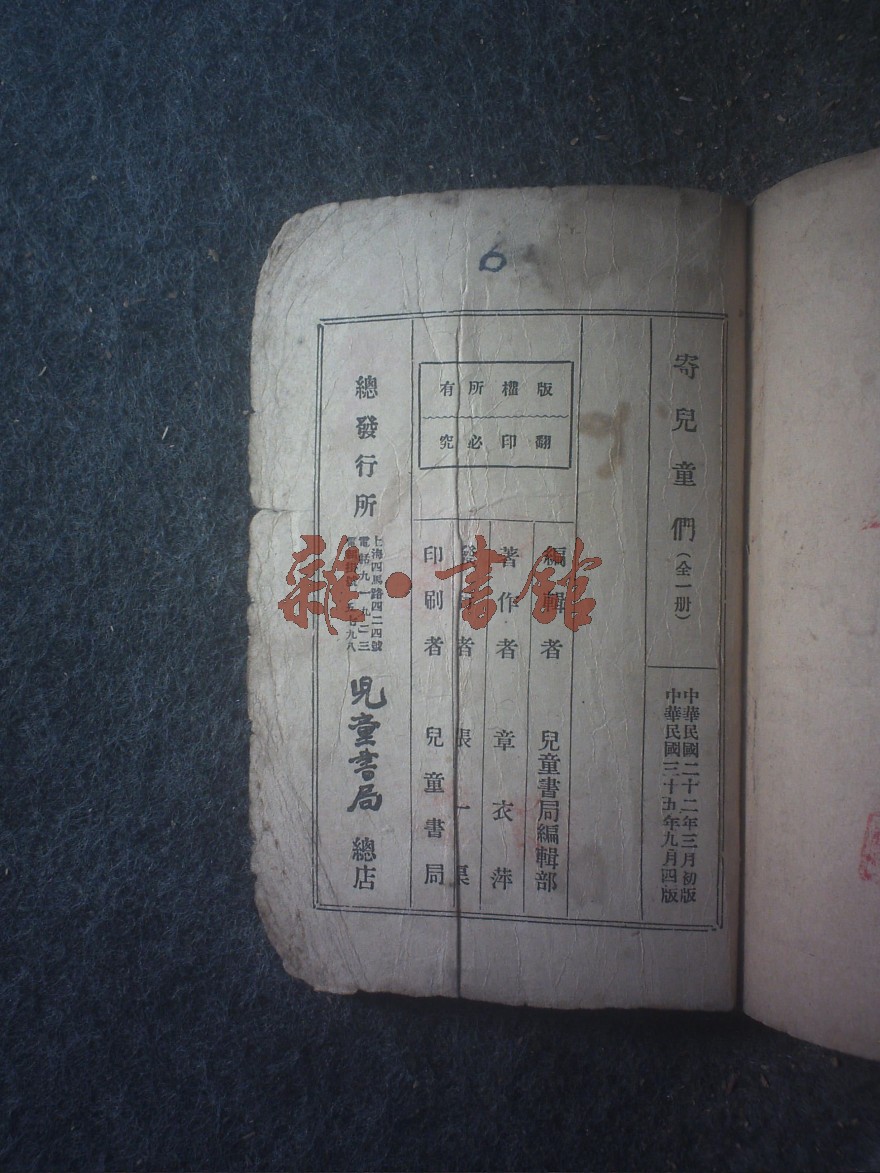 6
寄兒童們(全一册)
中華民國二十二年三月初版
中華民國三十五年九月四版
版權所有
翻印必究
編輯者 兒童書局編輯部
著作者 章衣萍
發行者 張一渠
印刷者 兒童書局
總發行所
上海四馬路四二四號
電話九一九二三
兒童書局 總店
雜·書館